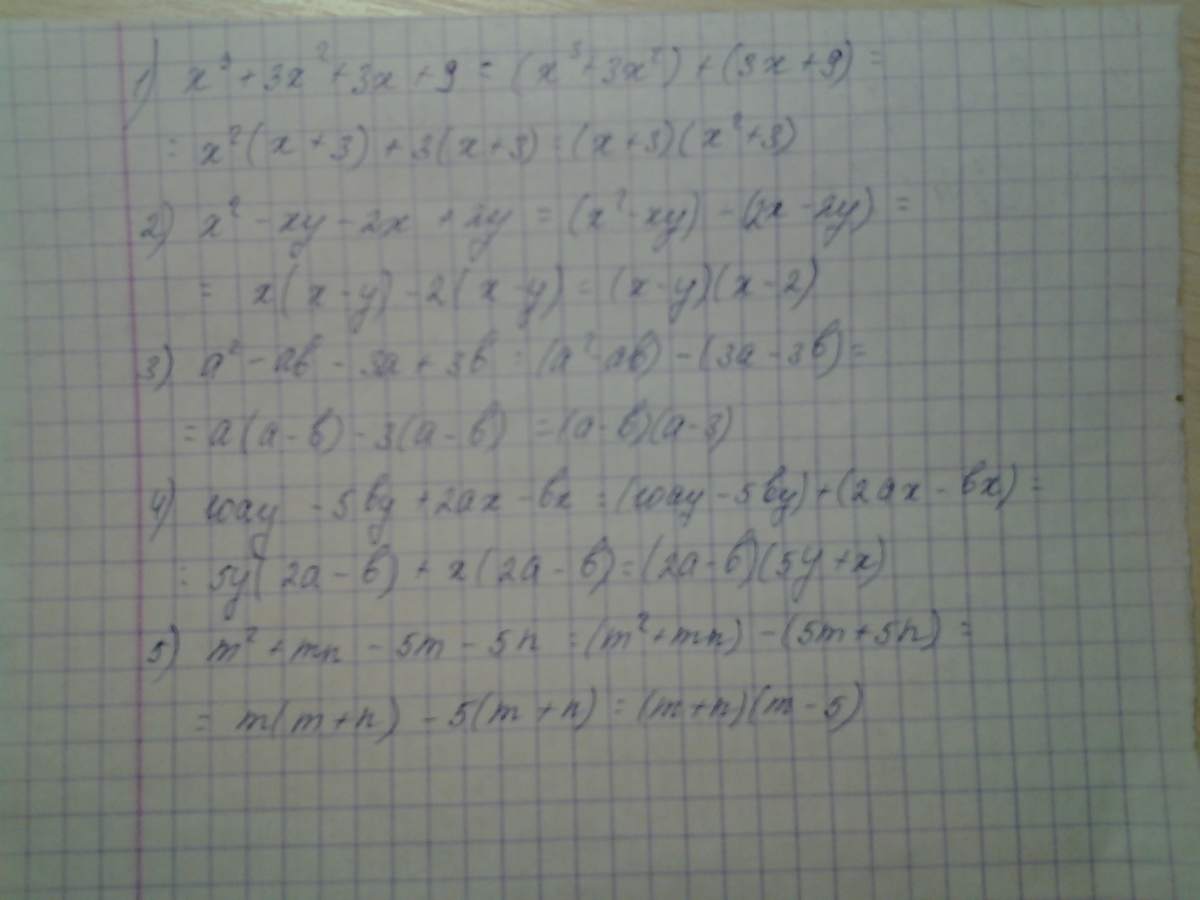 1) x³ + 3x² + 3x + 9 = (x³ + 3x²) + (3x + 9) =
= x²(x + 3) + 3(x + 3) = (x + 3)(x² + 3)
2) x² - xy - 2x + 2y = (x² - xy) - (2x - 2y) =
= x(x - y) - 2(x - y) = (x - y)(x - 2)
3) a² - ab - 3a + 3b = (a² - ab) - (3a - 3b) =
= a(a - b) - 3(a - b) = (a - b)(a - 3)
4) 10ay - 5by + 2ax - bx = (10ay - 5by) + (2ax - bx) =
= 5y(2a - b) + x(2a - b) = (2a - b)(5y + x)
5) m² + mn - 5m - 5n = (m² + mn) - (5m + 5n) =
= m(m + n) - 5(m + n) = (m + n)(m - 5)